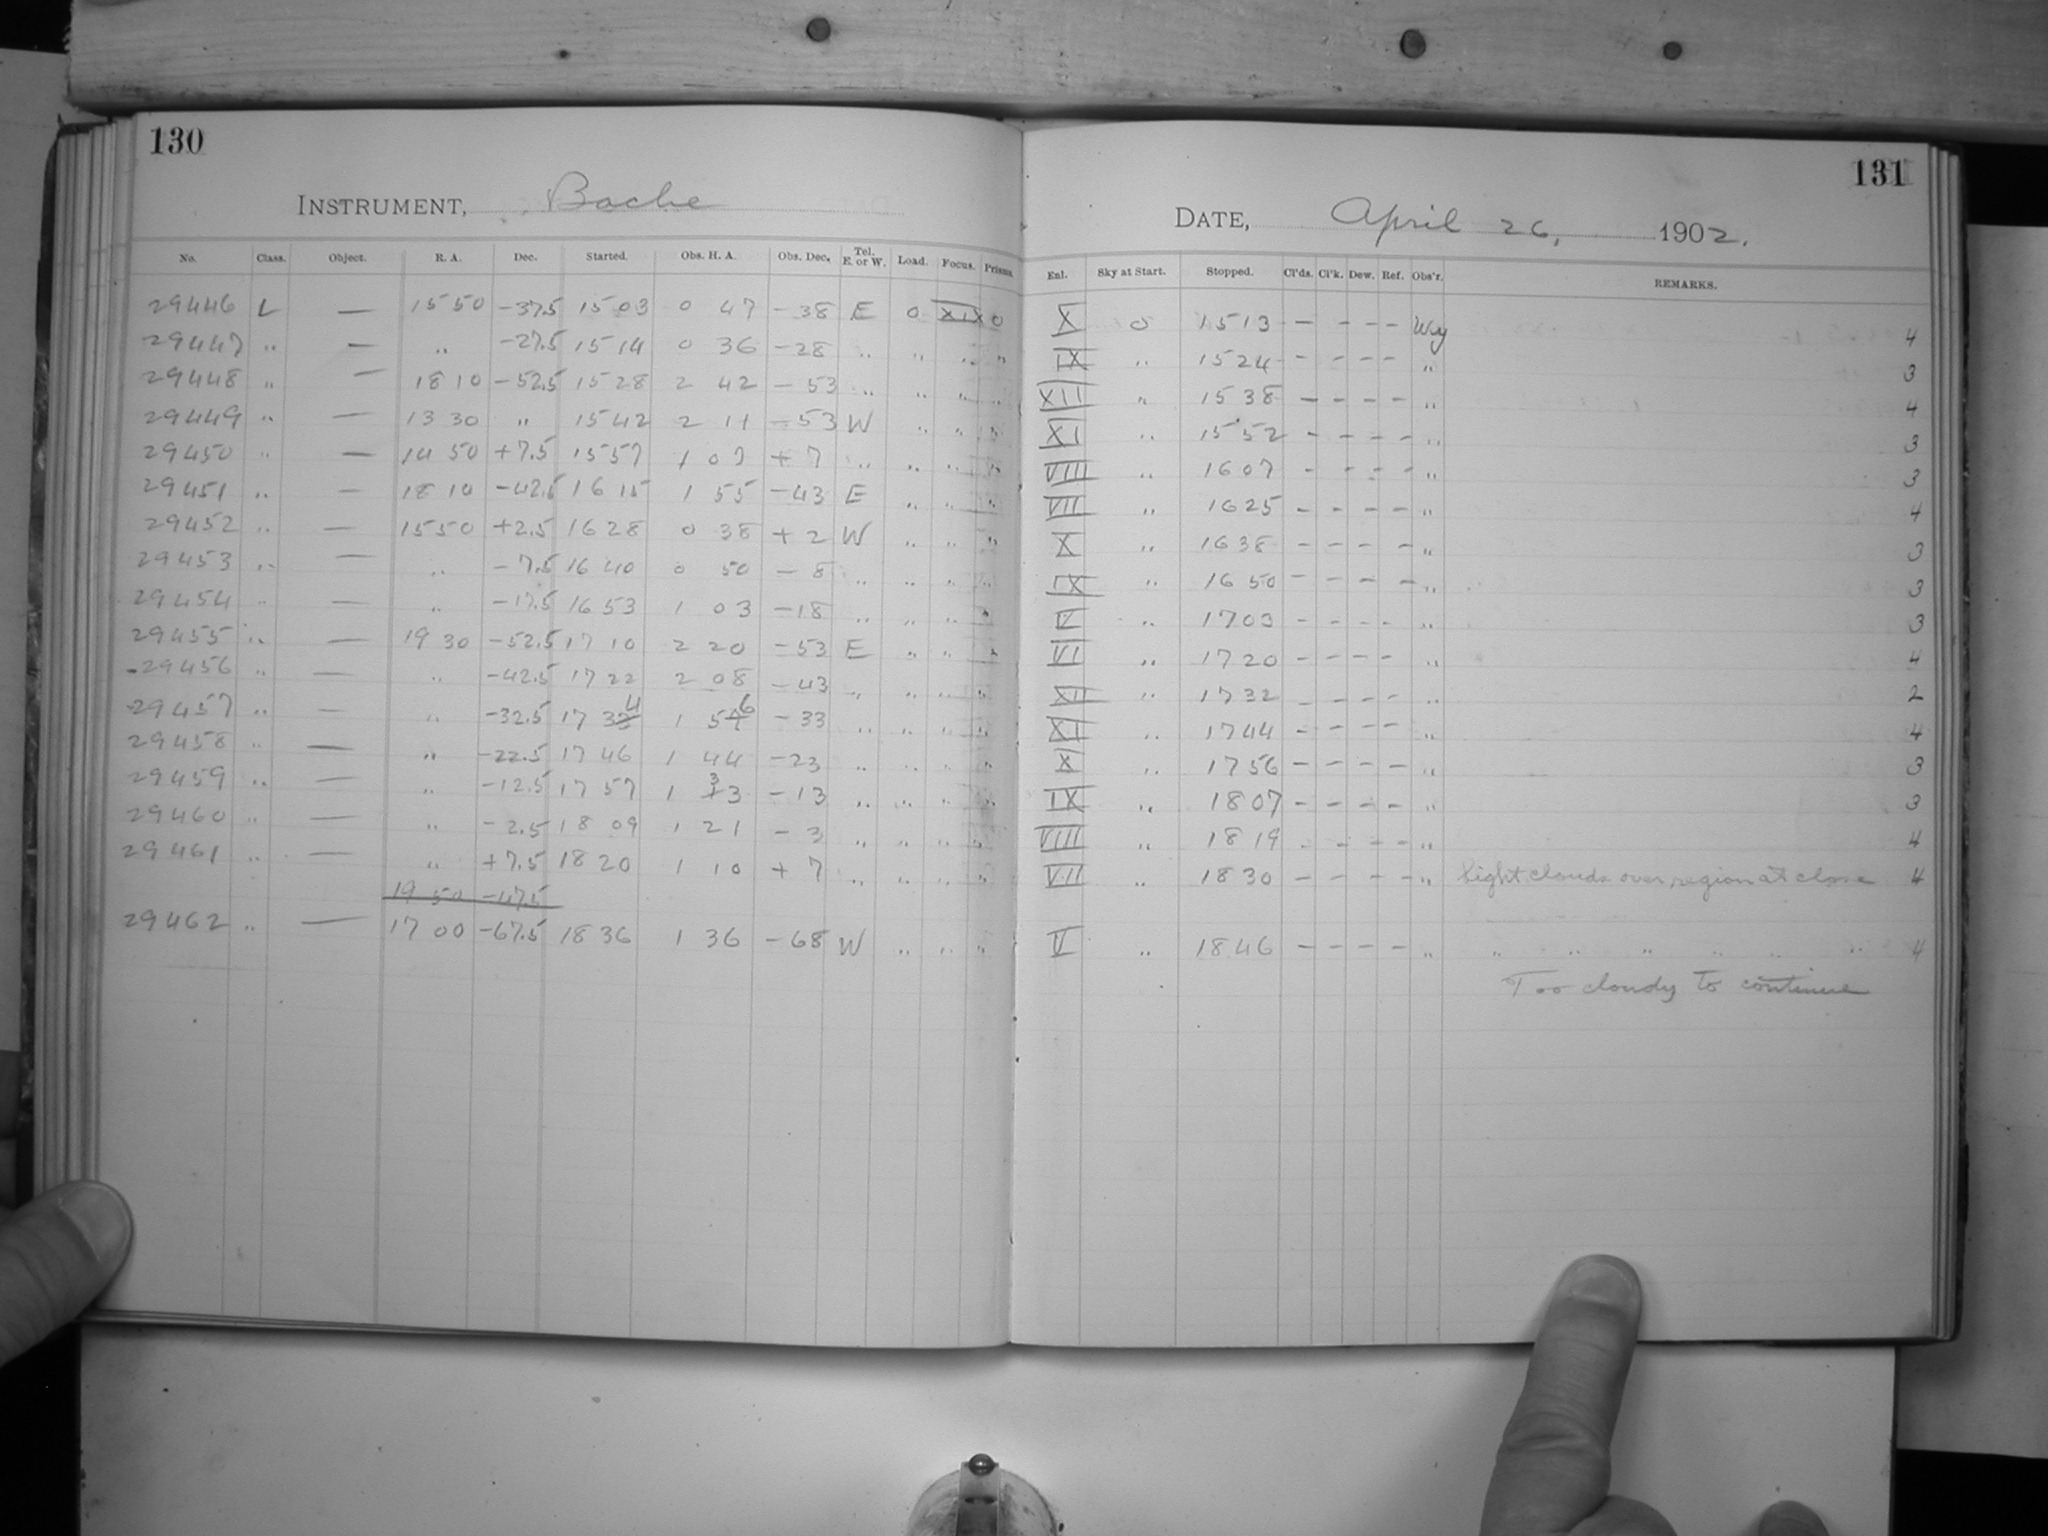 130
INSTRUMENT, Bache
No. Class. Object. R. A. Dec. Started. Obs. H. A. Obs. Dec. Tel. E. or W. Load. Focus. Prisms
29446 L — 15 50 −37.5 15 03 0 47 −38 E 0 XIX 0
29447 " — " −27.5 15 14 0 36 −28 " " " "
29448 " — 18 10 −52.5 15 28 2 42 −53 " " " "
29449 " — 13 30 " 15 42 2 11 −53 W " " "
29450 " — 14 50 +7.5 15 57 1 07 +7 " " " "
29451 " — 18 10 −42.5 16 15 1 55 −43 E " " "
29452 " — 15 50 +2.5 16 28 0 38 +2 W " " "
29453 " — " −7.5 16 40 0 50 −8 " " " "
29454 " — " −17.5 16 53 1 03 −18 " " " "
29455 " — 19 30 −52.5 17 10 2 20 −53 E " " "
29456 " — " −42.5 17 22 2 08 −43 " " " "
29457 " — " −32.5 17 34 1 56 −33 " " " "
29458 " — " −22.5 17 46 1 44 −23 " " " "
29459 " — " −12.5 17 57 1 33 −13 " " " "
29460 " — " −2.5 18 09 1 21 −3 " " " "
29461 " — " +7.5 18 20 1 10 +7 " " " "
19 50 −47.5
29462 " — 17 00 −67.5 18 36 1 36 −68 W " " "
131
DATE, April 26, 1902.
Enl. Sky at Start. Stopped. Cl'ds. Cl'k. Dew. Ref. Obs'r. REMARKS.
X 0 15 13 — — — — Wy 4
IX " 15 24 — — — — " 3
XII " 15 38 — — — — " 4
XI " 15 52 — — — — " 3
VIII " 16 07 — — — — " 3
VII " 16 25 — — — — " 4
X " 16 38 — — — — " 3
IX " 16 50 — — — — " 3
" 17 03 — — — — " 3
VI " 17 20 — — — — " 4
XII " 17 32 — — — — " 2
XI " 17 44 — — — — " 4
X " 17 56 — — — — " 3
IX " 18 07 — — — — " 3
VIII " 18 19 — — — — " 4
VII " 18 30 — — — — " light clouds over region at close 4
V " 18 46 — — — — " " " " " " " 4
Too cloudy to continue